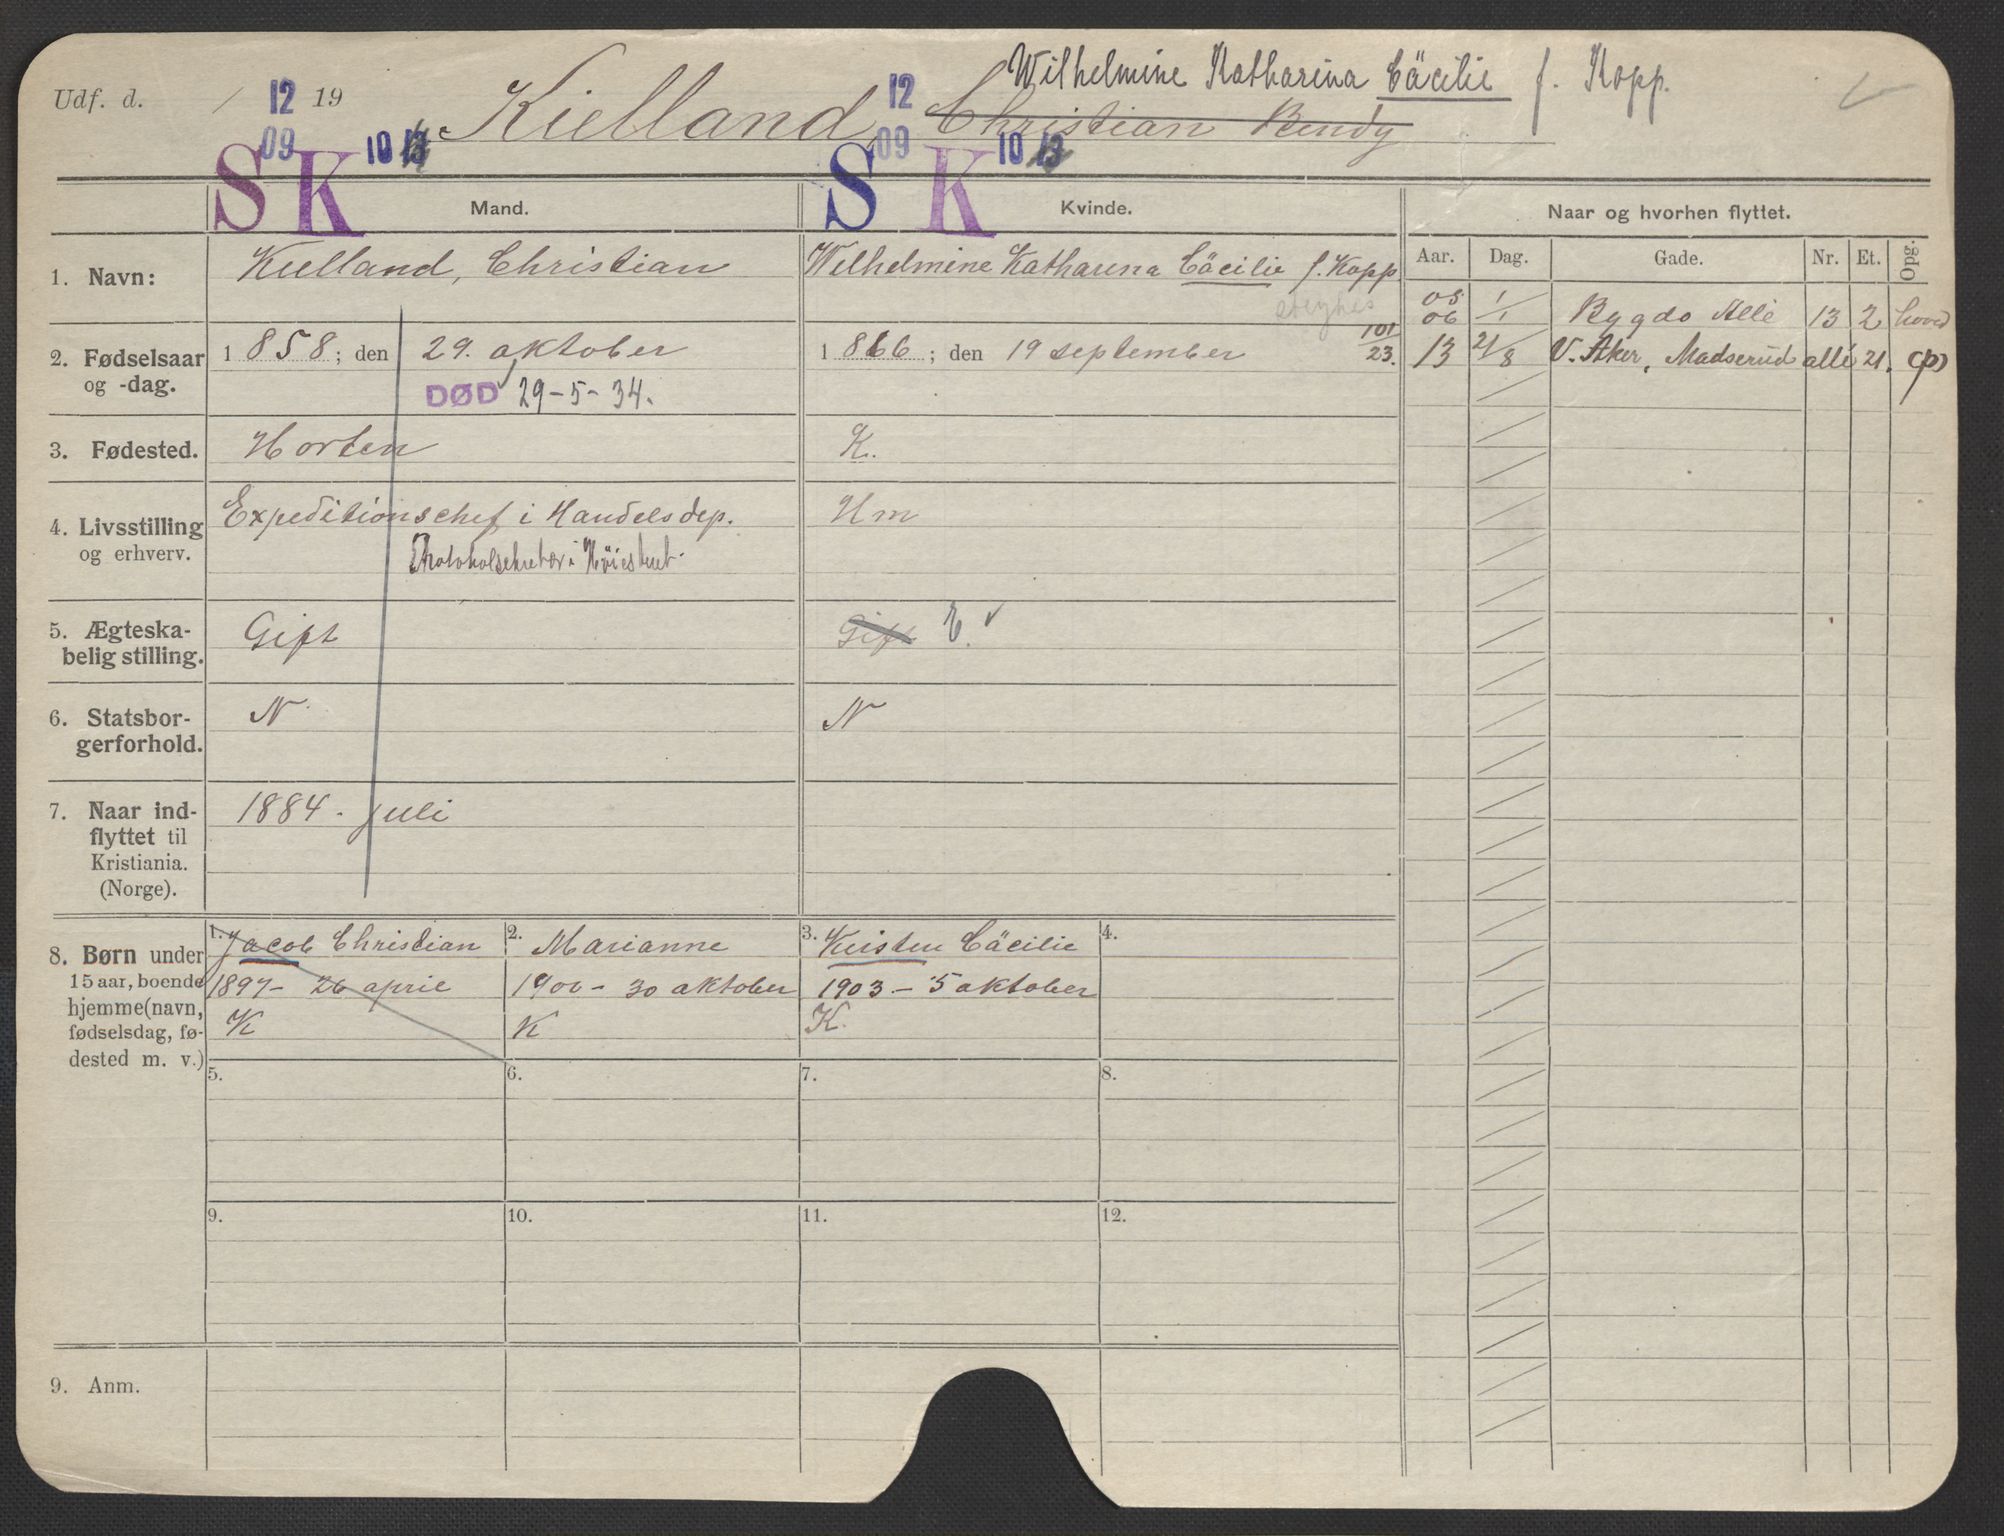 Wilhelmine Katharina Cäcilie f. Kopp.
Udf. d. / 12 19 Kielland, 12 Christian Bendy
09 10 13 09 10 13
S K S K
Mand. Kvinde. Naar og hvorhen flyttet.
1. Navn: Kielland, Christian Wilhelmine Katharina Cäcilie f. Kopp
Aar. Dag. Gade. Nr. Et. Opg.
05 1/1 Bygdo Allé 13 2 hoved
06
2. Fødselsaar og -dag. 1 858; den 29. oktober 1 866; den 19 september 101/23.
13 21/8 V. Aker, Madserud allé 21. (p)
DØD 29-5-34.
3. Fødested. Horten K.
4. Livsstilling og erhverv. Expeditionschef i Handelsdep. Hm
Protokolsekretær i Høiesteret.
5. Ægteska-
belig stilling. Gift Gift E.
6. Statsbor-
gerforhold. N N
7. Naar ind-
flyttet til
Kristiania.
(Norge). 1884. juli
8. Børn under
15 aar, boende
hjemme (navn,
fødselsdag, fø-
dested m. v.)
1. Jacob Christian 2. Marianne 3. Kirsten Cäcilie 4.
1897- 26 april 1900- 30 oktober 1903 - 5 oktober
K K K.
5. 6. 7. 8.
9. 10. 11. 12.
9. Anm.